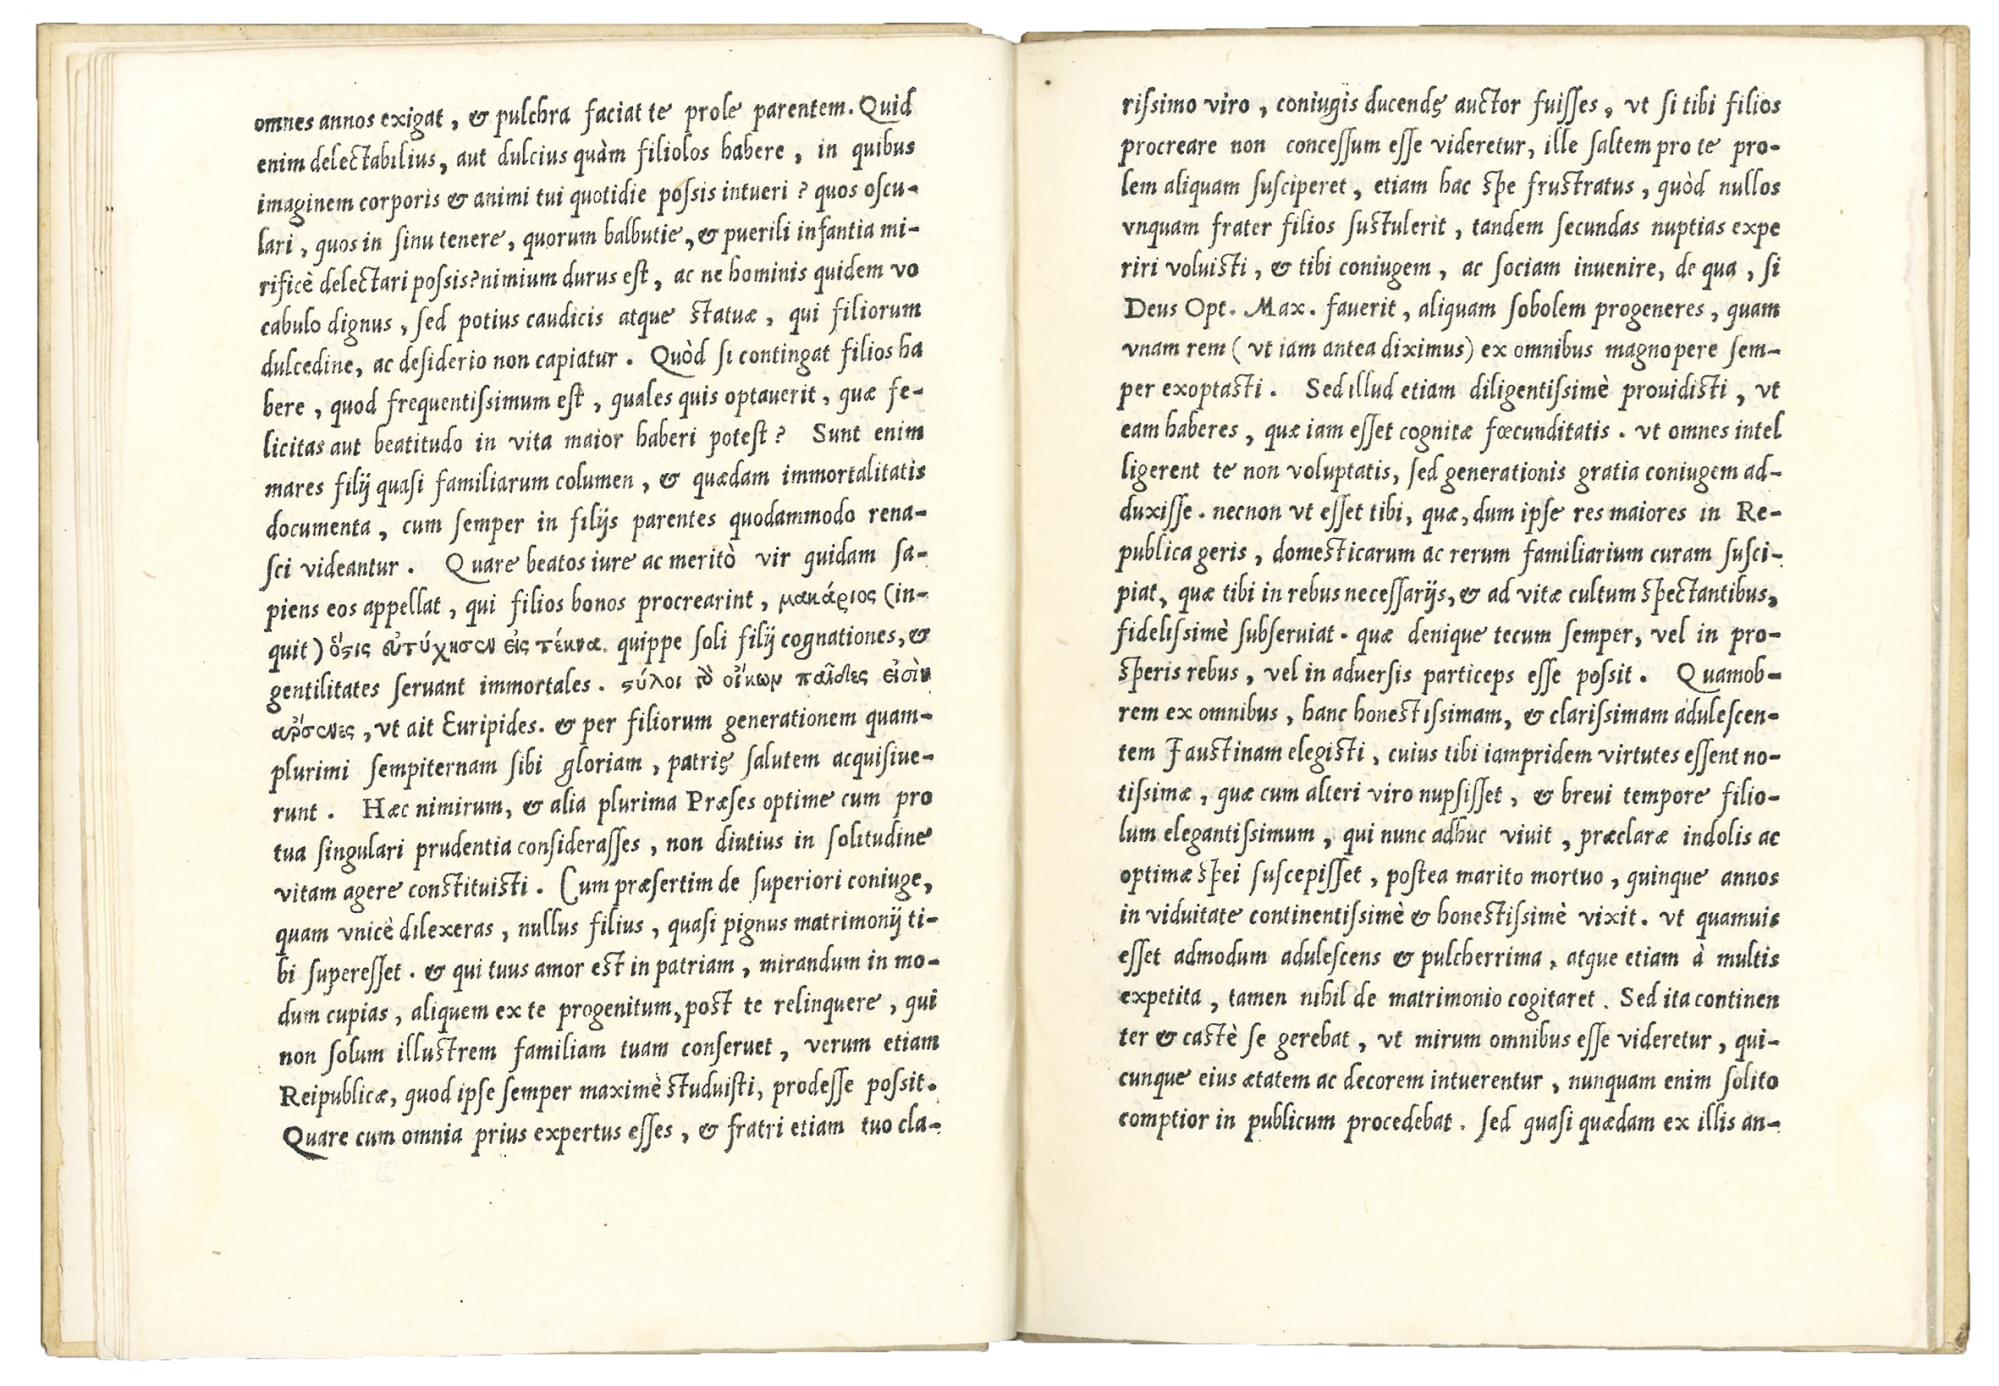 omnes annos exigat, & pulchra faciat te prole parentem. Quid
enim delectabilius, aut dulcius quàm filiolos habere, in quibus
imaginem corporis & animi tui quotidie poſsis intueri? quos oſcu-
lari, quos in ſinu tenere, quorum balbutie, & puerili infantia mi-
rificè delectari poſsis? nimium durus eſt, ac ne hominis quidem vo
cabulo dignus, ſed potius caudicis atque ſtatuæ, qui filiorum
dulcedine, ac deſiderio non capiatur. Quòd ſi contingat filios ha
bere, quod frequentiſsimum eſt, quales quis optauerit, quæ fe-
licitas aut beatitudo in vita maior haberi poteſt? Sunt enim
mares filij quaſi familiarum columen, & quædam immortalitatis
documenta, cum ſemper in filijs parentes quodammodo rena-
ſci videantur. Quare beatos iure ac meritò vir quidam ſa-
piens eos appellat, qui filios bonos procrearint, μακάριος (in-
quit) ὅςις εὐτύχησεν εἰς τέκνα. quippe ſoli filij cognationes, &
gentilitates ſeruant immortales. ςύλοι τὸ οἴκων παῖδες εἰσὶν
ἄρσενες, vt ait Euripides. & per filiorum generationem quam-
plurimi ſempiternam ſibi gloriam, patrię ſalutem acquiſiue-
runt. Hæc nimirum, & alia plurima Præſes optime cum pro
tua ſingulari prudentia conſideraſſes, non diutius in ſolitudine
vitam agere conſtituiſti. Cum præſertim de ſuperiori coniuge,
quam vnicè dilexeras, nullus filius, quaſi pignus matrimonij ti-
bi ſupereſſet. & qui tuus amor eſt in patriam, mirandum in mo-
dum cupias, aliquem ex te progenitum, poſt te relinquere, qui
non ſolum illuſtrem familiam tuam conſeruet, verum etiam
Reipublicæ, quod ipſe ſemper maximè ſtuduiſti, prodeſſe poſsit.
Quare cum omnia prius expertus eſſes, & fratri etiam tuo cla-
riſsimo viro, coniugis ducendę auctor fuiſſes, vt ſi tibi filios
procreare non conceſſum eſſe videretur, ille ſaltem pro te pro-
lem aliquam ſuſciperet, etiam hac ſpe fruſtratus, quòd nullos
vnquam frater filios ſuſtulerit, tandem ſecundas nuptias expe
riri voluiſti, & tibi coniugem, ac ſociam inuenire, de qua, ſi
Deus Opt. Max. fauerit, aliquam ſobolem progeneres, quam
vnam rem (vt iam antea diximus) ex omnibus magnopere ſem-
per exoptaſti. Sed illud etiam diligentiſsimè prouidiſti, vt
eam haberes, quæ iam eſſet cognitæ fœcunditatis. vt omnes intel
ligerent te non voluptatis, ſed generationis gratia coniugem ad-
duxiſſe. necnon vt eſſet tibi, quæ, dum ipſe res maiores in Re-
publica geris, domeſticarum ac rerum familiarium curam ſuſci-
piat, quæ tibi in rebus neceſſarijs, & ad vitæ cultum ſpectantibus,
fideliſsimè ſubſeruiat. quæ denique tecum ſemper, vel in pro-
ſperis rebus, vel in aduerſis particeps eſſe poſsit. Quamob-
rem ex omnibus, hanc honeſtiſsimam, & clariſsimam aduleſcen-
tem Fauſtinam elegiſti, cuius tibi iampridem virtutes eſſent no-
tiſsimæ, quæ cum alteri viro nupſiſſet, & breui tempore filio-
lum elegantiſsimum, qui nunc adhuc viuit, præclaræ indolis ac
optimæ ſpei ſuſcepiſſet, poſtea marito mortuo, quinque annos
in viduitate continentiſsimè & honeſtiſsimè vixit. vt quamuis
eſſet admodum aduleſcens & pulcherrima, atque etiam à multis
expetita, tamen nihil de matrimonio cogitaret. Sed ita continen
ter & caſtè ſe gerebat, vt mirum omnibus eſſe videretur, qui-
cunque eius ætatem ac decorem intuerentur, nunquam enim ſolito
comptior in publicum procedebat. ſed quaſi quædam ex illis an-